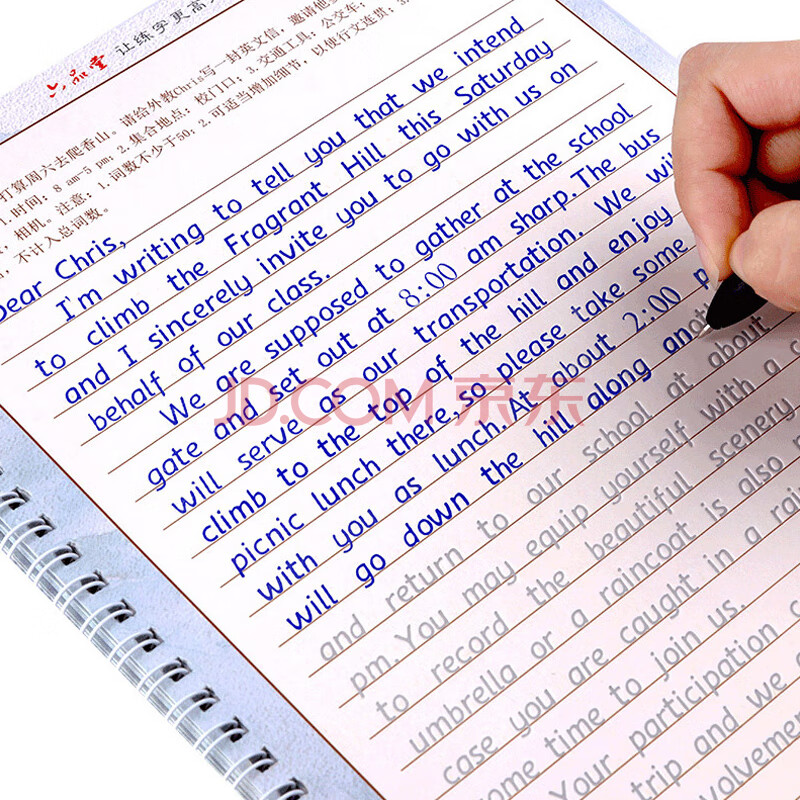 六品堂 让练字更高
打算周六去爬香山。请给外教Chris写一封英文信，邀请他
1.时间：8 am-5 pm; 2.集合地点：校门口; 3.交通工具：公交车;
相机。注意：1.词数不少于50; 2.可适当增加细节，以使行文连贯; 3.
不计入总词数。
Dear Chris,
I'm writing to tell you that we intend
to climb the Fragrant Hill this Saturday
and I sincerely invite you to go with us on
behalf of our class.
We are supposed to gather at the school
gate and set out at 8:00 am sharp. The bus
will serve as our transportation. We will
climb to the top of the hill and enjoy
picnic lunch there, so please take some
with you as lunch. At about 2:00 p
will go down the hill along anoth
and return to our school at about
pm. You may equip yourself with a c
to record the beautiful scenery
umbrella or a raincoat is also
case you are caught in a rai
some time to join us.
Your participation
trip and we
volvemen
JD.COM 京东